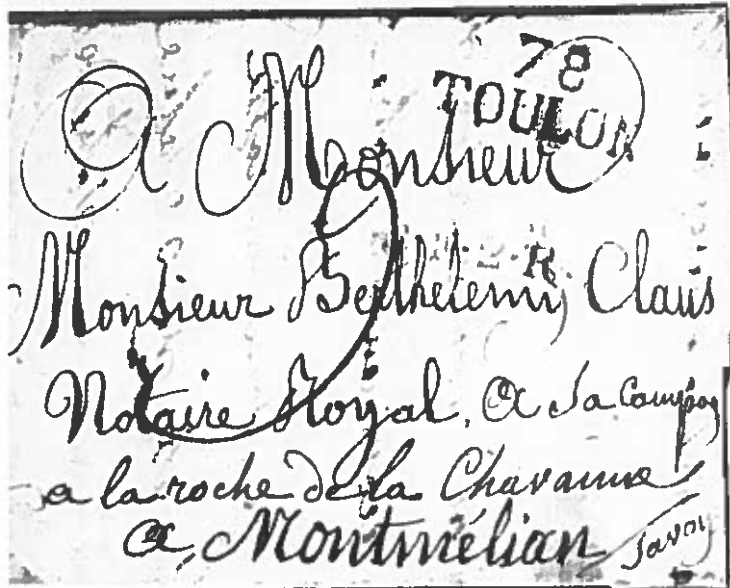 78
TOULON
A Monsieur
Monsieur Berthelemy Claus
Notaire Royal, A Sa Campag
a la roche de la Chavanne
A Montmélian Savoy